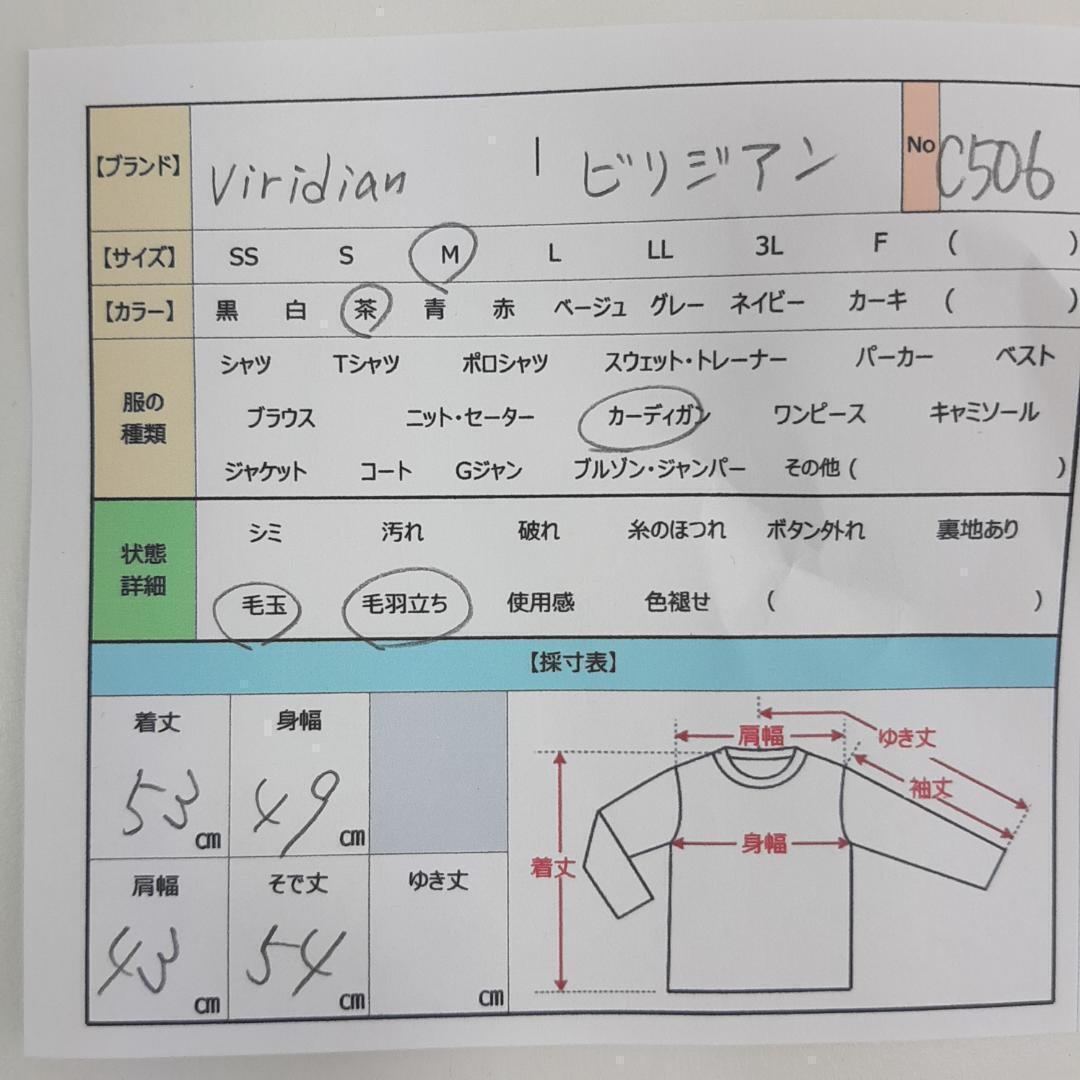 【ブランド】 Viridian | ビリジアン No C506
【サイズ】 SS S M L LL 3L F ( )
【カラー】 黒 白 茶 青 赤 ベージュ グレー ネイビー カーキ ( )
服の種類
シャツ Tシャツ ポロシャツ スウェット・トレーナー パーカー ベスト
ブラウス ニット・セーター カーディガン ワンピース キャミソール
ジャケット コート Gジャン ブルゾン・ジャンパー その他 ( )
状態詳細
シミ 汚れ 破れ 糸のほつれ ボタン外れ 裏地あり
毛玉 毛羽立ち 使用感 色褪せ ( )
【採寸表】
着丈 身幅
53cm 49cm
肩幅 そで丈 ゆき丈
43cm 54cm cm
肩幅 ゆき丈
袖丈
身幅
着丈